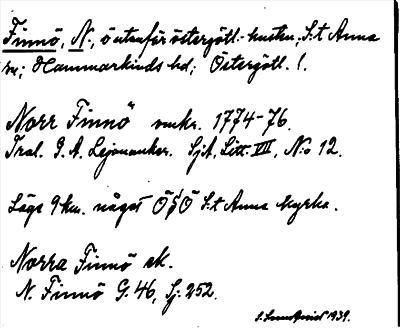 Finnö, N., ö utanför östergötl.-kusten, S:t Anna
sn; Hammarkinds hd; Östergötl. l.
Norr Finnö omkr. 1774-76.
Tral. G. A. Lejonanker. SjA, Litt. VIII, N:o 12.
Läge 9 km. något ÖSÖ S:t Anna kyrka.
Norra Finnö ek.
N. Finnö G. 46, Sj: 252.
1939.